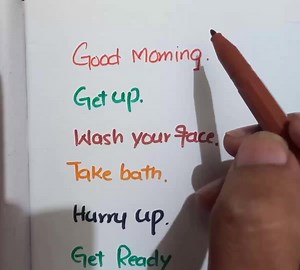 Good Morning.
Get up.
Wash your face.
Take bath.
Hurry up.
Get Ready